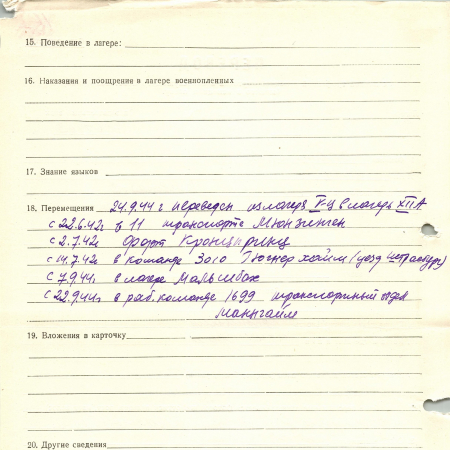 15. Поведение в лагере:
16. Наказания и поощрения в лагере военнопленных
17. Знание языков
18. Перемещения 24.9.44 г переведен из лагеря V-Ц в лагерь XII А
с 22.6.42г в 11 транспорте Мюнзинген
с 2.7.42г Форт Кронпринц
с 14.7.42г в команде 3010 (уезд Страсбург)
с 7.9.44г в лагере Мальшбах
с 22.9.44г в раб. команде 1699 транспортный отдел
Маннгайм
19. Вложения в карточку
20. Другие сведения